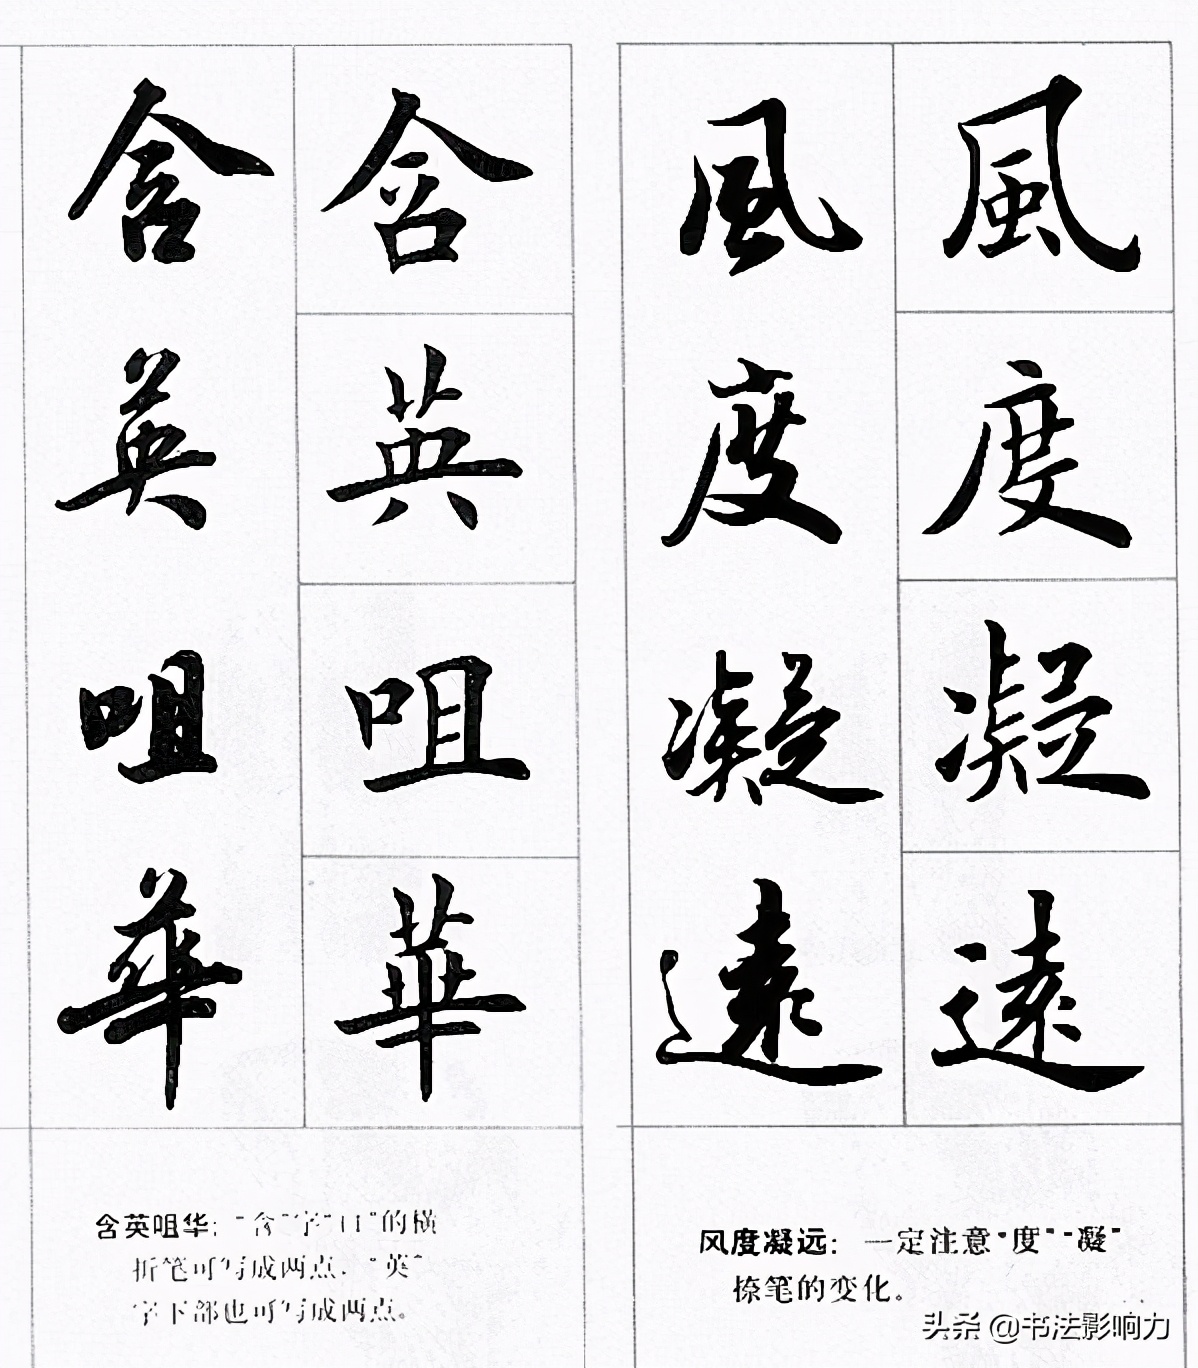 風度凝遠
風度凝遠
风度凝远：一定注意“度”“凝”
捺笔的变化。
含英咀華
含英咀華
含英咀华：“含”字“口”的横
折笔可写成两点．“英”
字下部也可写成两点。
头条 @书法影响力